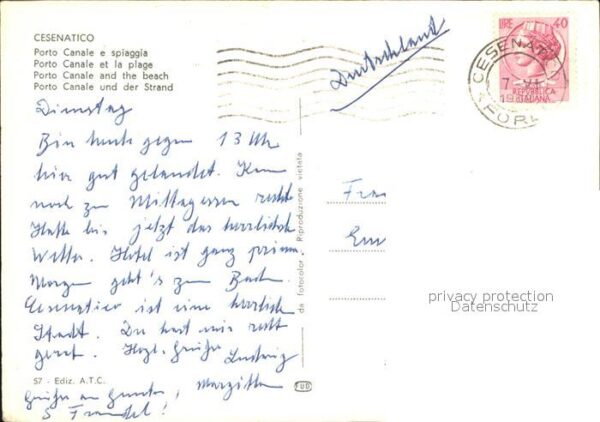 CESENATICO
Porto Canale e spiaggia
Porto Canale et la plage
Porto Canale and the beach
Porto Canale und der Strand
Deutschland
LIRE 40
REPVBBLICA
ITALIANA
CESENATI
FOR
Dienstag
Bin heute gegen 13 Uhr
hier gut gelandet. Kam
noch zum Mittagessen recht
Hatte bis jetzt das herrlichste
Wetter. Hotel ist ganz prima
Morgen geht's zum
Cesenatico ist eine herrlich
Stadt. Du hast mir recht
gerat. Herzl. Grüße Ludwig
Grüße an Gunter, Margitta
S
Frau
Em
da fotocolor - Riproduzione vietata
57 - Ediz. A.T.C.
privacy protection
Datenschutz